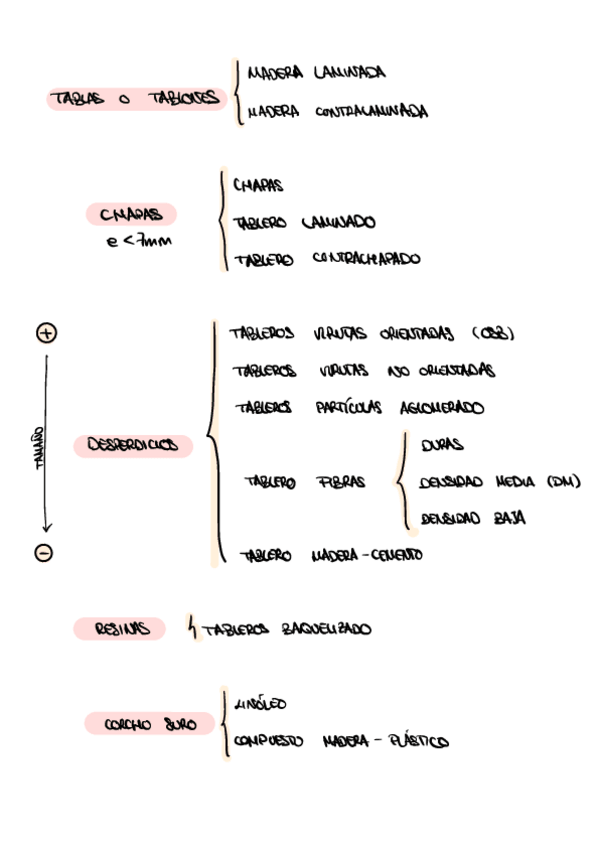 MADERA LAMINADA
TABLAS O TABLONES
MADERA CONTRALAMINADA
CHAPAS
CHAPAS
TABLERO LAMINADO
e < 7mm
TABLERO CONTRACHAPADO
+
TABLEROS VIRUTAS ORIENTADAS (OSB)
TABLEROS VIRUTAS NO ORIENTADAS
TABLEROS PARTÍCULAS AGLOMERADO
TAMAÑO
DESPERDICIOS
DURAS
TABLERO FIBRAS
DENSIDAD MEDIA (DM)
DENSIDAD BAJA
-
TABLERO MADERA - CEMENTO
RESINAS
TABLEROS BAQUELIZADO
LINÓLEO
CORCHO SURO
COMPUESTO MADERA - PLÁSTICO